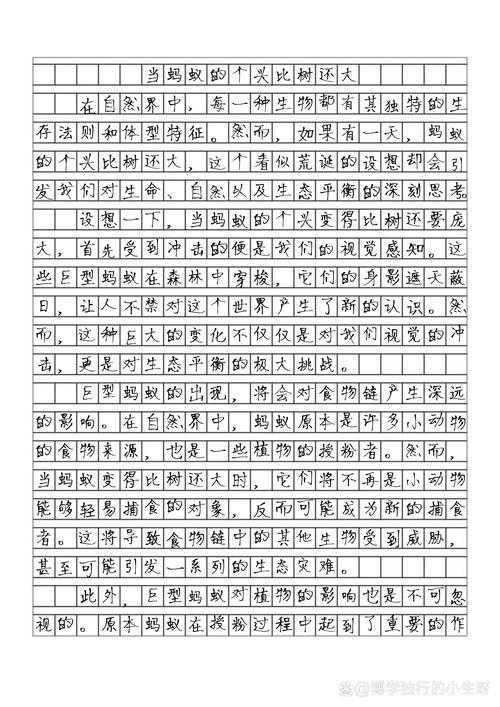 当蚂蚁的个头比树还大
在自然界中，每一种生物都有其独特的生
存法则和体型特征。然而，如果有一天，蚂蚁
的个头比树还大，这个看似荒诞的设想却会引
发我们对生命、自然以及生态平衡的深刻思考。
设想一下，当蚂蚁的个头变得比树还要庞
大，首先受到冲击的便是我们的视觉感知。这
些巨型蚂蚁在森林中穿梭，它们的身影遮天蔽
日，让人不禁对这个世界产生了新的认识。然
而，这种巨大的变化不仅仅是对我们视觉的冲
击，更是对生态平衡的极大挑战。
巨型蚂蚁的出现，将会对食物链产生深远
的影响。在自然界中，蚂蚁原本是许多小动物
的食物来源，也是一些植物的授粉者。然而，
当蚂蚁变得比树还大时，它们将不再是小动物
能够轻易捕食的对象，反而可能成为新的捕食
者。这将导致食物链中的其他生物受到威胁，
甚至可能引发一系列的生态灾难。
此外，巨型蚂蚁对植物的影响也是不可忽
视的。原本蚂蚁在授粉过程中起到了重要的作
@博学独行的小生呀